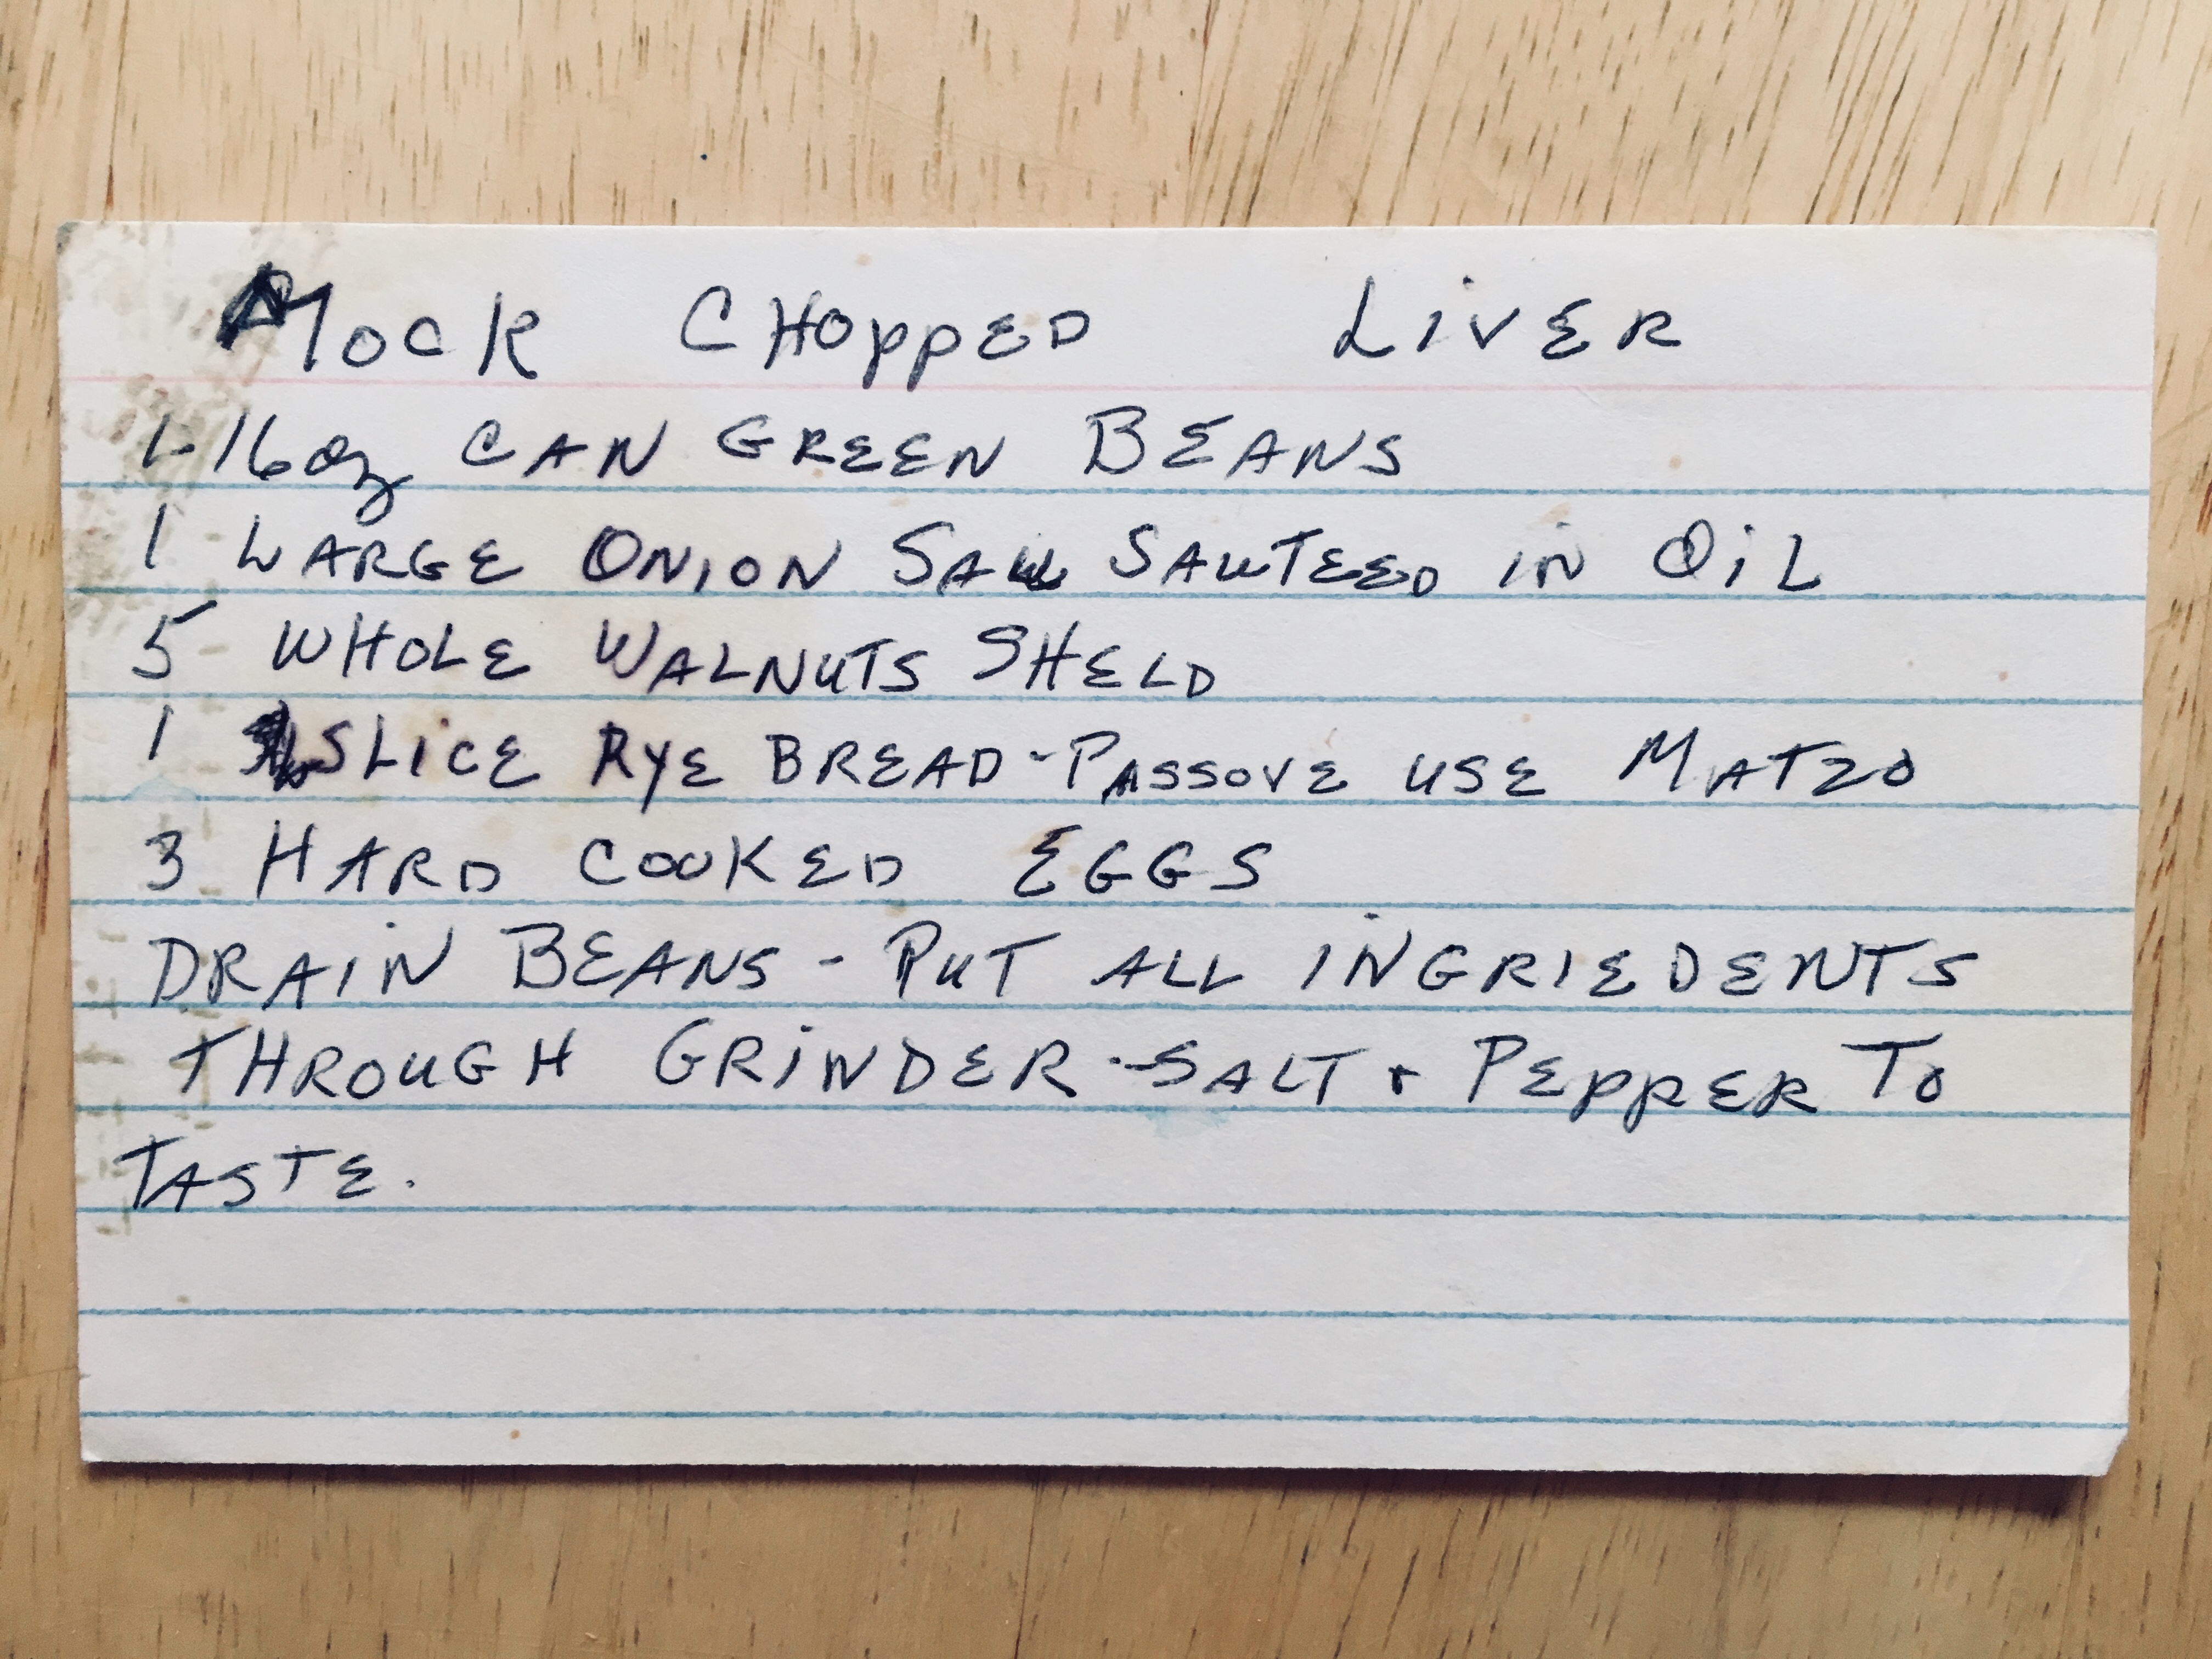 MOCK CHOPPED LIVER
1-16oz CAN GREEN BEANS
1 LARGE ONION SAU SAUTEED IN OIL
5 WHOLE WALNUTS SHELD
1 SLICE RYE BREAD - PASSOVE USE MATZO
3 HARD COOKED EGGS
DRAIN BEANS - PUT ALL INGRIEDENTS
THROUGH GRINDER - SALT + PEPPER TO
TASTE.